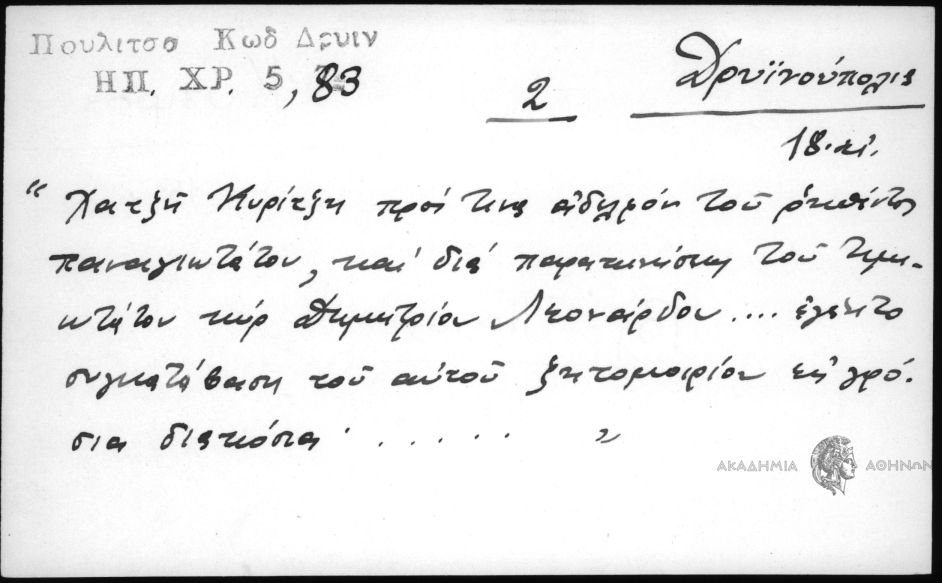 Πουλιτσα Κωδ Δρυιν
ΗΠ. ΧΡ. 5, 83
2
Δρυϊνούπολις
18. αἰ.
“ Χατζῆ Κυρίτζη πρός τινα ἀδελφόν τοῦ ῥηθέντος
παναγιωτάτου, καί διά παρακινήσεως τοῦ τιμι-
ωτάτου κύρ Δημητρίου Λεονάρδου .... ἐγένετο
συγκατάβασις τοῦ αὐτοῦ ζητομοιρίου εἰς γρό-
σια διακόσια . . . . . . ”
ΑΚΑΔΗΜΙΑ ΑΘΗΝΩΝ